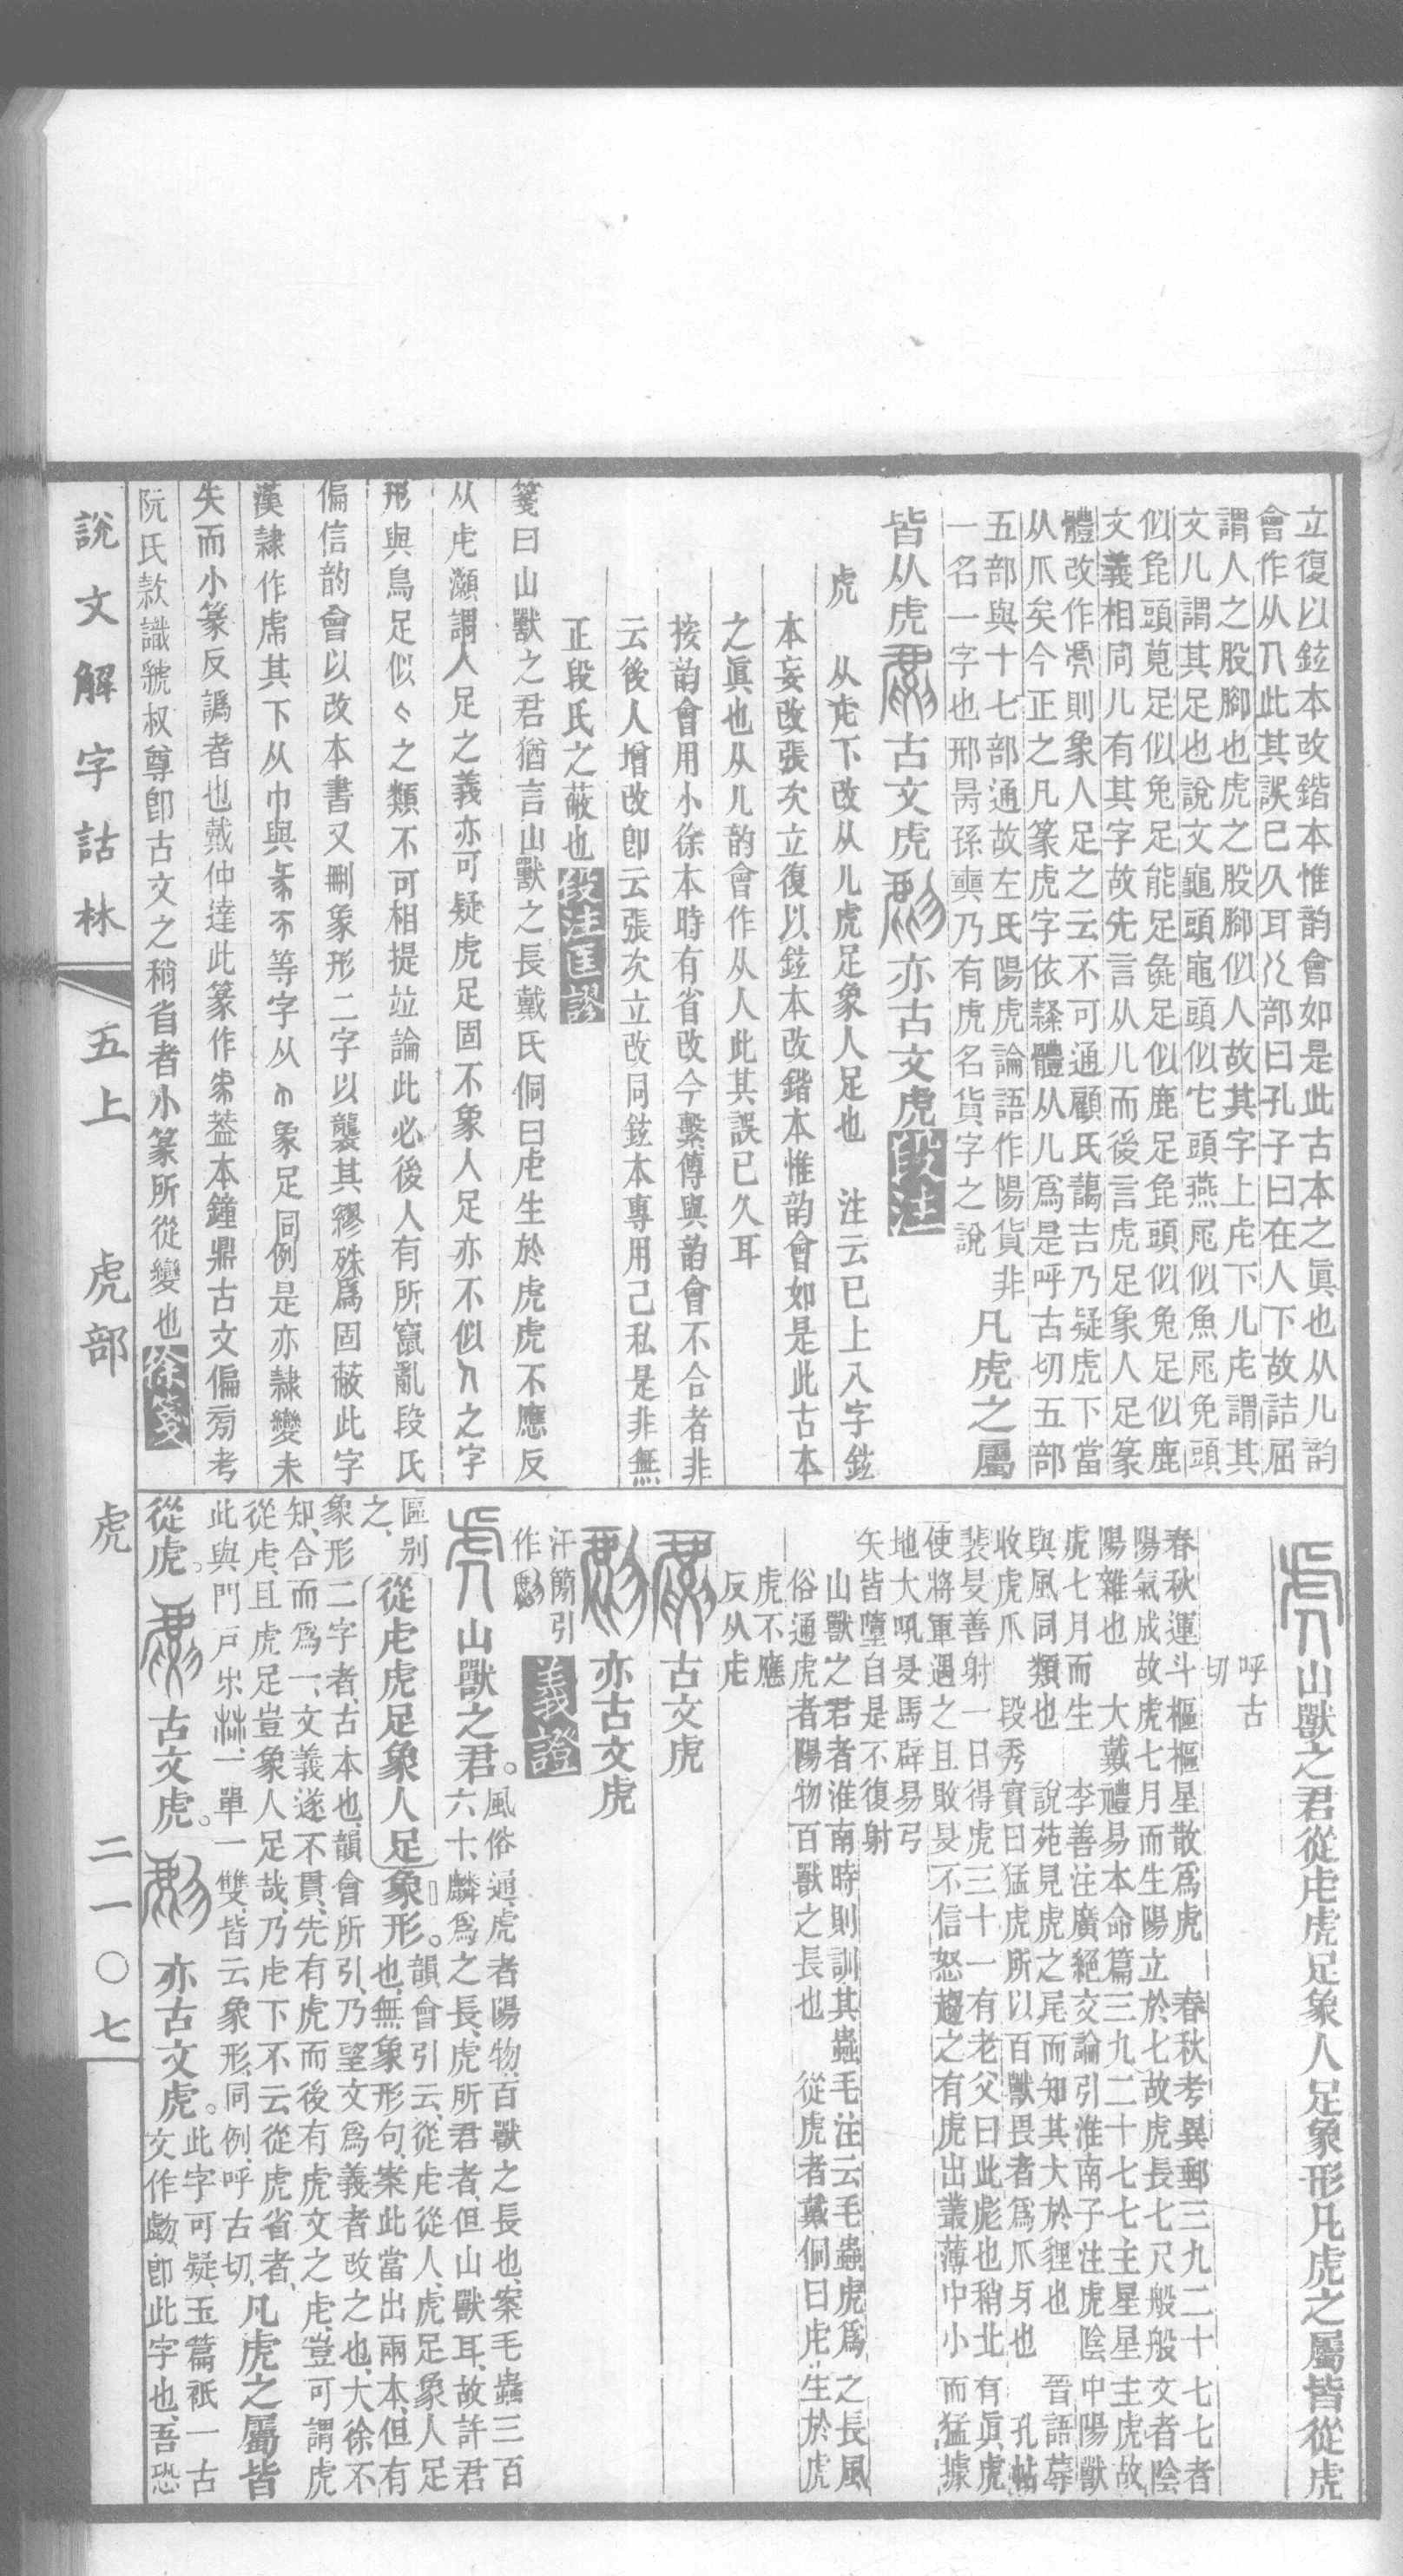 立復以鉉本改鍇本惟韵會如是此古本之眞也从儿韵
會作从𠘨此其誤已久耳儿部曰孔子曰在人下故詰屈
謂人之股腳也虎之股腳似人故其字上虍下儿虍謂其
文儿謂其足也說文龜頭黽頭似它頭燕𡱕似魚𡱕兔頭
似㲋頭萈足似兔足能足㲋足似鹿足㲋頭似兔足似鹿
文義相同儿有其字故先言从儿而後言虎足象人足篆
體改作𧆞則象人足之云不可通顧氏藹吉乃疑虎下當
从爪矣今正之凡篆虎字依隸體从儿爲是呼古切五部
五部與十七部通故左氏陽虎論語作陽貨非
一名一字也邢昺孫奭乃有虎名貨字之說
凡虎之屬
皆从虎 古文虎 亦古文虎 段注
虎 从虍下改从儿虎足象人足也 注云已上八字鉉
本妄改張次立復以鉉本改鍇本惟韵會如是此古本
之眞也从儿韵會作从人此其誤已久耳
按韵會用小徐本時有省改今繫傳與韵會不合者非
云後人增改卽云張次立改同鉉本專用己私是非無
正段氏之蔽也 段注匡謬
箋曰山獸之君猶言山獸之長戴氏侗曰虍生於虎虎不應反
从虍灝謂人足之義亦可疑虎足固不象人足亦不似𠆢之字
形與鳥足似匕之類不可相提竝論此必後人有所竄亂段氏
偏信韵會以改本書又刪象形二字以襲其繆殊爲固蔽此字
漢隸作虎其下从巾與等字从象足同例是亦隸變未
失而小篆反譌者也戴仲達此篆作蓋本鐘鼎古文偏旁考
阮氏款識虢叔尊卽古文之稍省者小篆所從變也 徐箋
山獸之君從虍虎足象人足象形凡虎之屬皆從虎
呼古
切
春秋運斗樞樞星散爲虎 春秋考異郵三九二十七七者
陽氣成故虎七月而生陽立於七故虎長七尺般般文者陰
陽雜也 大戴禮易本命篇三九二十七七主星星主虎故
虎七月而生 李善注廣絕交論引淮南子注虎陰中陽獸
與風同類也 說苑見虎之尾而知其大於貍也 晉語辱
收虎爪 段秀實曰猛虎所以百獸畏者爲爪牙也 孔帖
裴旻善射一日得虎三十一有老父曰此彪也稍北有眞虎
使將軍遇之且敗旻不信怒趨之有虎出叢薄中小而猛據
地大吼旻馬辟易弓
矢皆墮自是不復射
山獸之君者淮南時則訓其蟲毛注云毛蟲虎爲之長風
俗通虎者陽物百獸之長也 從虎者戴侗曰虍生於虎
虎不應
反从虍
古文虎
亦古文虎
汗簡引
作
義證
山獸之君。
風俗通、虎者陽物、百獸之長也、案毛蟲三百
六十、麟爲之長、虎所君者、但山獸耳、故許君
區别
之、
從虍虎足象人足象形。
韻會引云、從虍從人、虎足象人足
也、無象形句、案此當出兩本、但有
象形二字者、古本也、韻會所引、乃望文爲義者改之也、大徐不
知、合而爲一、文義遂不貫、先有虎而後有虎文之虍、豈可謂虎
從虍、且虎足豈象人足哉、乃虍下不云從虎省者、
此與門戶宋𣏟、一單一雙、皆云象形、同例、呼古切、
凡虎之屬皆
從虎。 古文虎。 亦古文虎。
此字可疑、玉篇祇一古
文作、卽此字也、吾恐
說文解字詁林 五上 虎部 虎 二一〇七